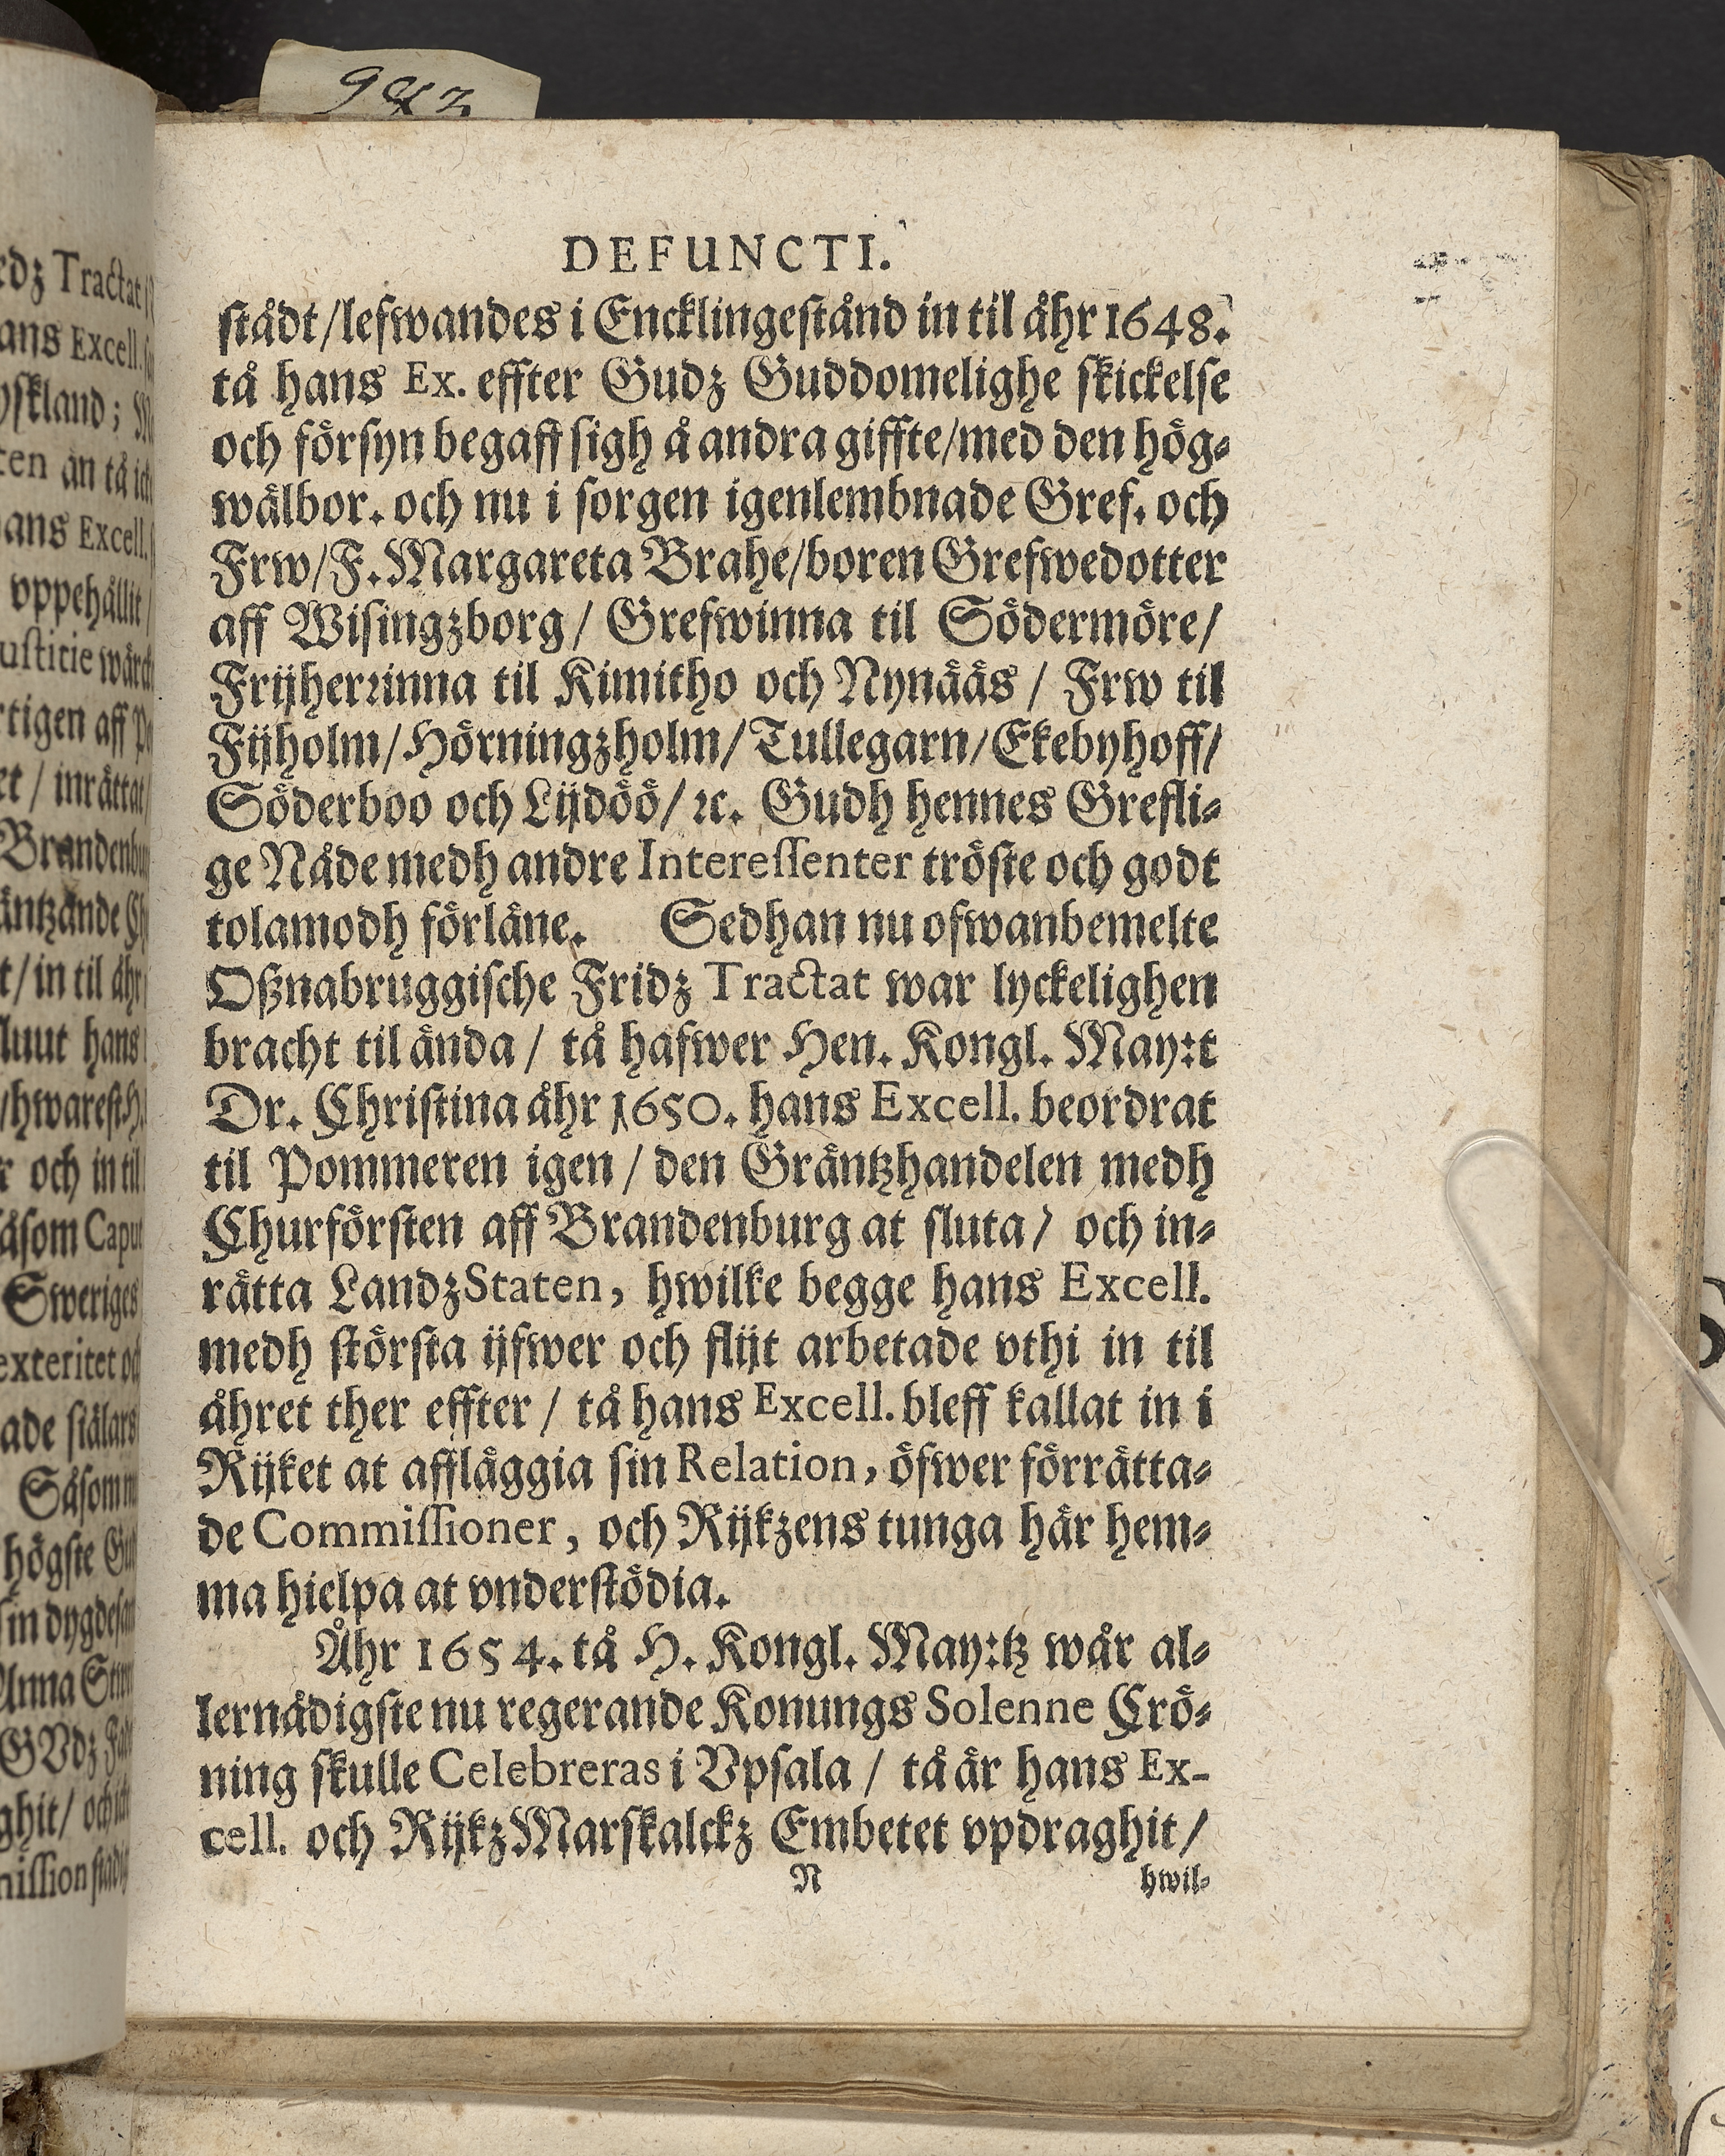 9&z
DEFUNCTI.
städt/lefwandes i Encklingestånd in til åhr 1648.
tå hans Ex. effter Gudz Guddomelighe skickelse
och försyn begaff sigh å andra giffte/med den hög-
wälbor. och nu i sorgen igenlembnade Gref. och
Frw/F. Margareta Brahe/boren Grefwedotter
aff Wisingzborg/ Grefwinna til Södermöre/
Frijherrinna til Kimitho och Nynääs / Frw til
Fijholm/Hörningzholm/Tullegarn/Ekebyhoff/
Söderboo och Lijdöö/ ꝛc. Gudh hennes Grefli-
ge Nåde medh andre Interessenter tröste och godt
tolamodh förläne. Sedhan nu ofwanbemelte
Oßnabruggische Fridz Tractat war lyckelighen
bracht til ända / tå hafwer Hen. Kongl. May:t
Dr. Christina åhr 1650. hans Excell. beordrat
til Pommeren igen / den Gräntzhandelen medh
Churförsten aff Brandenburg at sluta / och in-
rätta LandzStaten, hwilke begge hans Excell.
medh största ijfwer och flijt arbetade vthi in til
åhret ther effter / tå hans Excell. bleff kallat in i
Rijket at affläggia sin Relation, öfwer förrätta-
de Commissioner, och Rijkzens tunga här hem-
ma hielpa at vnderstödia.
Åhr 1654. tå H. Kongl. May:tz wår al-
lernådigste nu regerande Konungs Solenne Crö-
ning skulle Celebreras i Vpsala / tå är hans Ex-
cell. och RijkzMarskalckz Embetet vpdraghit/
N hwil-